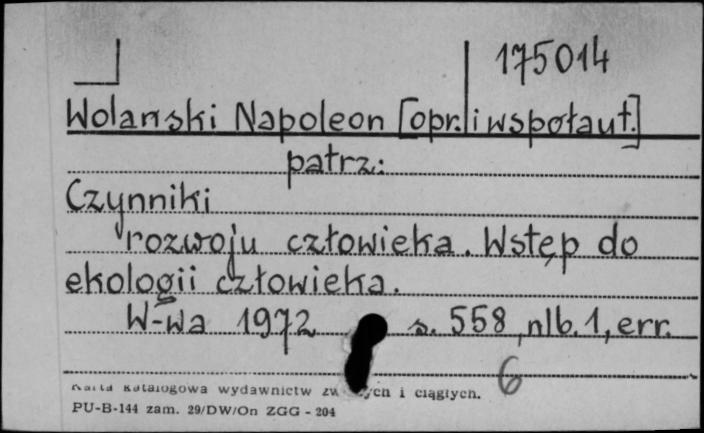 175014
Wolański Napoleon [opr. i współaut.]
patrz:
Czynniki
rozwoju człowieka. Wstęp do
ekologii człowieka.
W-wa 1972 s. 558, nlb. 1, err.
6
Karta katalogowa wydawnictw i ciągłych.
PU-B-144 zam. 29/DW/On ZGG - 204